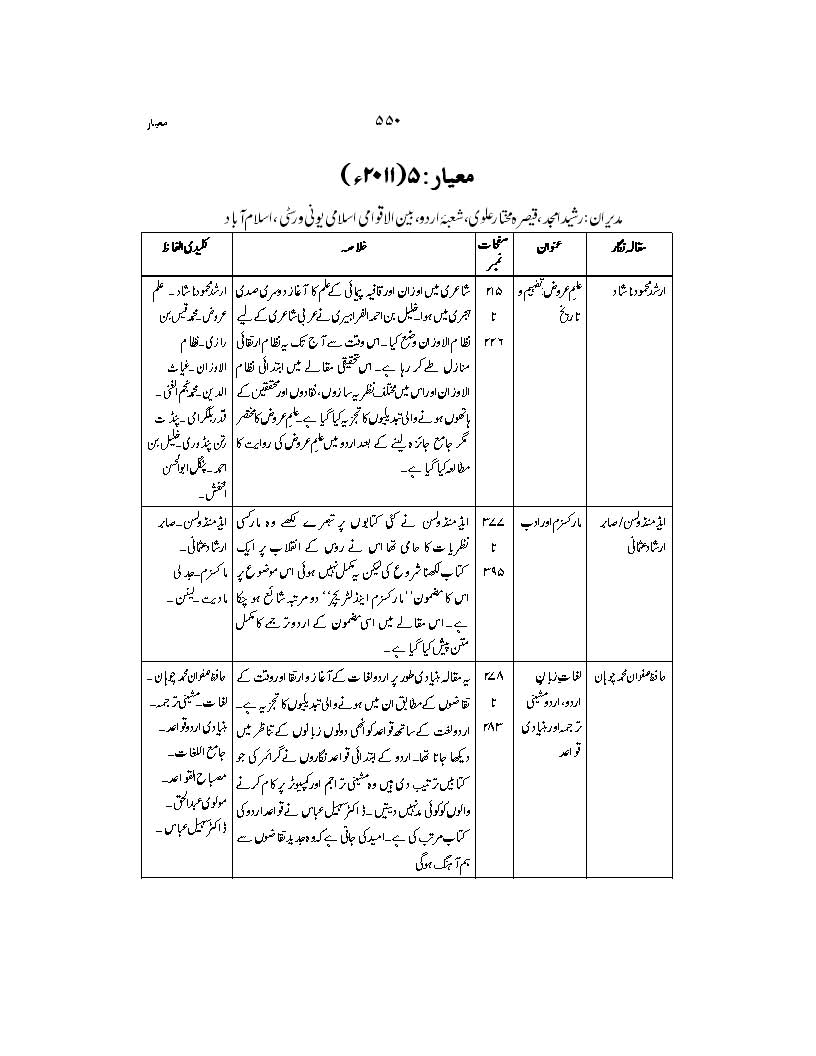 معیار
۵۵۰
معیار: ۵ (۲۰۱۱ء)
مدیران: رشید امجد، قیصرہ مختار علوی، شعبۂ اردو، بین الاقوامی اسلامی یونی ورسٹی، اسلام آباد
مقالہ نگار
عنوان
صفحات
نمبر
خلاصہ
کلیدی الفاظ
ارشد محمود ناشاد
علمِ عروض: تفہیم و
تاریخ
۲۱۵
تا
۲۲۶
شاعری میں اوزان اور قافیہ پیمائی کے علم کا آغاز دوسری صدی
ہجری میں ہوا۔ خلیل بن احمد الفراہیدی نے عربی شاعری کے لیے
نظام الاوزان وضع کیا۔ اس وقت سے آج تک یہ نظام ارتقائی
منازل طے کر رہا ہے۔ اس تحقیقی مقالے میں ابتدائی نظام
الاوزان اور اس میں مختلف نظریہ سازوں، نقادوں اور محققین کے
ہاتھوں ہونے والی تبدیلیوں کا تجزیہ کیا گیا ہے۔ علمِ عروض کا مختصر
مگر جامع جائزہ لینے کے بعد اردو میں علمِ عروض کی روایت کا
مطالعہ کیا گیا ہے۔
ارشد محمود ناشاد۔ علم
عروض۔ محمد قیس بن
رازی۔ نظام
الاوزان۔ غیاث
الدین۔ محمد نجم الغنی۔
قدر بلگرامی۔ پنڈت
رتن پنڈوری۔ خلیل بن
احمد۔ پنگل ابوالحسن
اخفش۔
ایڈمنڈولسن/ صابر
ارشاد عثمانی
مارکسزم اور ادب
۳۷۷
تا
۳۹۵
ایڈمنڈولسن نے کئی کتابوں پر تبصرے لکھے وہ مارکسی
نظریات کا حامی تھا اس نے روس کے انقلاب پر ایک
کتاب لکھنا شروع کی لیکن یہ مکمل نہیں ہوئی اس موضوع پر
اس کا مضمون ‘‘مارکسزم اینڈ لٹریچر’’ دو مرتبہ شائع ہو چکا
ہے۔ اس مقالے میں اسی مضمون کے اردو ترجمے کا مکمل
متن پیش کیا گیا ہے۔
ایڈمنڈولسن۔ صابر
ارشاد عثمانی۔
مارکسزم۔ جدلی
مادیت۔ لینن۔
حافظ صفوان محمد چوہان
لغات زبان
اردو، اردو مشینی
ترجمہ اور بنیادی
قواعد
۲۷۸
تا
۲۸۳
یہ مقالہ بنیادی طور پر اردو لغات کے آغاز و ارتقا اور وقت کے
تقاضوں کے مطابق ان میں ہونے والی تبدیلیوں کا تجزیہ ہے۔
اردو لغت کے ساتھ قواعد کو انھی دونوں زبانوں کے تناظر میں
دیکھا جاتا تھا۔ اردو کے ابتدائی قواعد نگاروں نے گرائمر کی جو
کتابیں ترتیب دی ہیں وہ مشینی تراجم اور کمپیوٹر پر کام کرنے
والوں کو کوئی مدد نہیں دیتیں۔ ڈاکٹر سہیل عباس نے قواعد اردو کی
کتاب مرتب کی ہے۔ امید کی جاتی ہے کہ وہ جدید تقاضوں سے
ہم آہنگ ہوگی
حافظ صفوان محمد چوہان۔
لغات۔ مشینی ترجمہ۔
بنیادی اردو قواعد۔
جامع اللغات۔
مصباح القواعد۔
مولوی عبدالحق۔
ڈاکٹر سہیل عباس۔